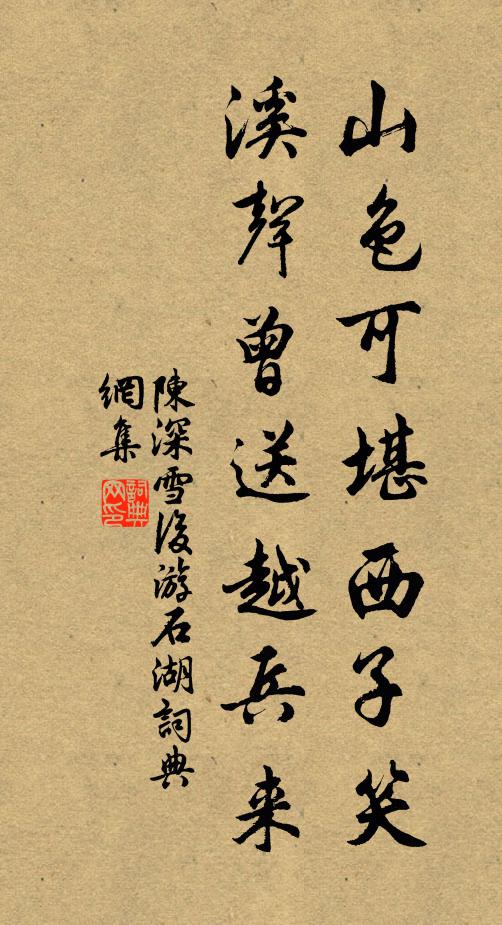 山色可堪西子笑
溪聲曾送越兵来
陳深雪後游石湖詞典
網集
詞典
网印